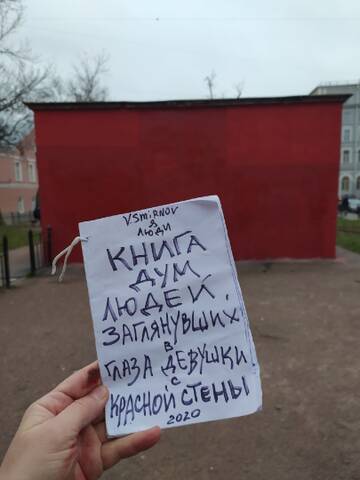 V.SMiRNOV
&
ЛЮДИ
КНИГА
ДУМ
ЛЮДЕЙ,
ЗАГЛЯНУВШИХ
В
ГЛАЗА ДЕВУШКИ
С
КРАСНОЙ СТЕНЫ
2020